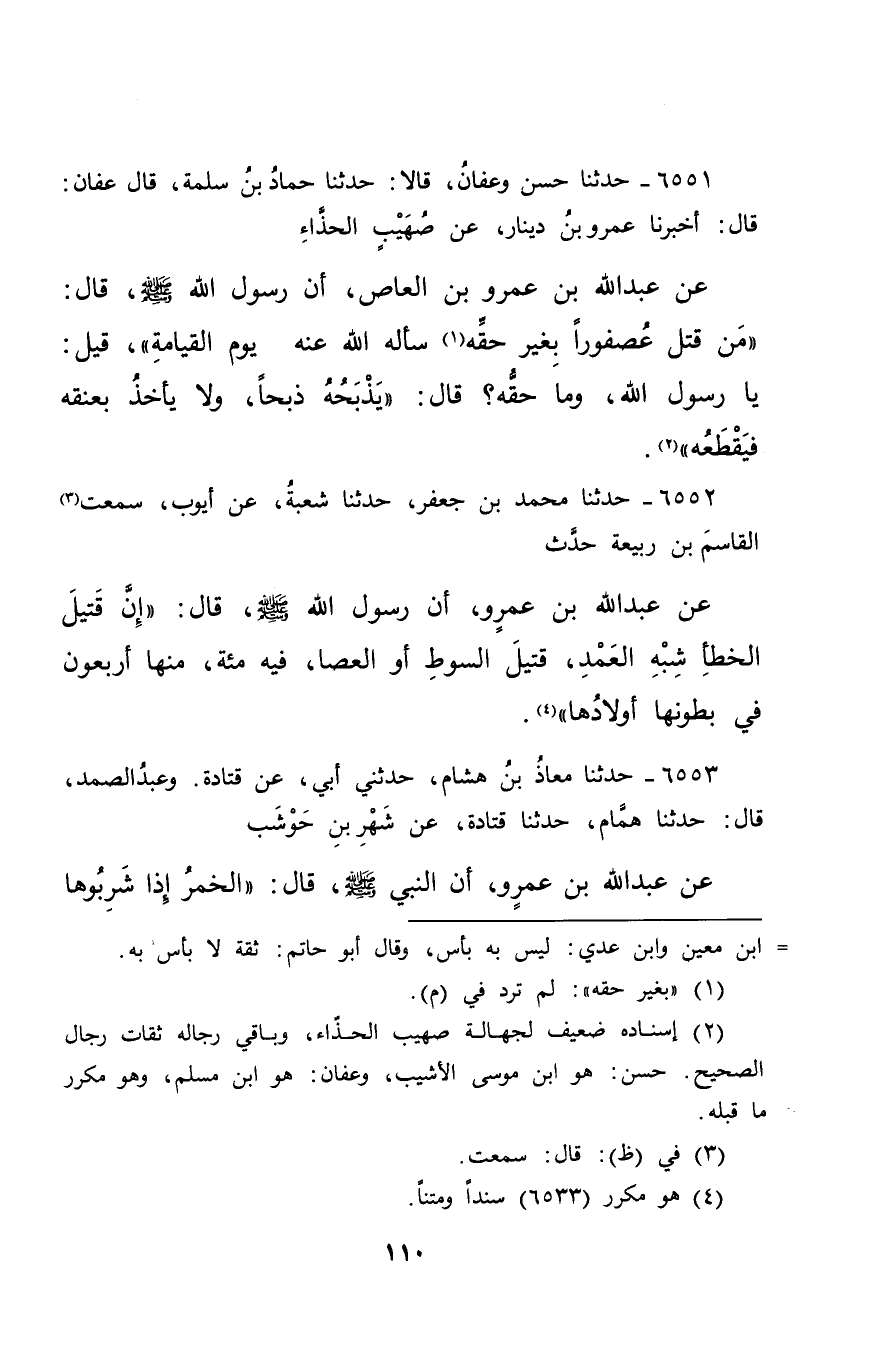 ٦٥٥١ ـ حدثنا حسن وعفانُ، قالا: حدثنا حمادُ بنُ سلمة، قال عفان:
قال: أخبرنا عمرو بنُ دينار، عن صُهَيْبٍ الحذَّاءِ
عن عبدالله بن عمرو بن العاص، أن رسول الله ﷺ، قال:
«مَن قتل عُصفوراً بِغير حقِّه(١) سأله الله عنه يوم القيامةِ»، قيل:
يا رسول الله، وما حقُّه؟ قال: «يَذْبَحُهُ ذبحاً، ولا يأخذُ بعنقه
فيَقْطَعُه»(٢).
٦٥٥٢ ـ حدثنا محمد بن جعفر، حدثنا شعبةُ، عن أيوب، سمعت(٣)
القاسمَ بن ربيعة حدَّث
عن عبدالله بن عمرٍو، أن رسول الله ﷺ، قال: «إِنَّ قَتيلَ
الخطأِ شِبْهِ العَمْدِ، قتيلَ السوطِ أو العصا، فيه مئة، منها أربعون
في بطونها أولادُها»(٤).
٦٥٥٣ ـ حدثنا معاذُ بنُ هشام، حدثني أبي، عن قتادة. وعبدُالصمد،
قال: حدثنا همَّام، حدثنا قتادة، عن شَهْرِ بنِ حَوْشَب
عن عبدالله بن عمرٍو، أن النبي ﷺ، قال: «الخمرُ إِذا شَرِبُوها
= ابن معين وابن عدي: ليس به بأس، وقال أبو حاتم: ثقة لا بأس به.
(١) «بغير حقه»: لم ترد في (م).
(٢) إسناده ضعيف لجهالة صهيب الحذّاء، وباقي رجاله ثقات رجال
الصحيح. حسن: هو ابن موسى الأشيب، وعفان: هو ابن مسلم، وهو مكرر
ما قبله.
(٣) في (ظ): قال: سمعت.
(٤) هو مكرر (٦٥٣٣) سنداً ومتناً.
١١٠